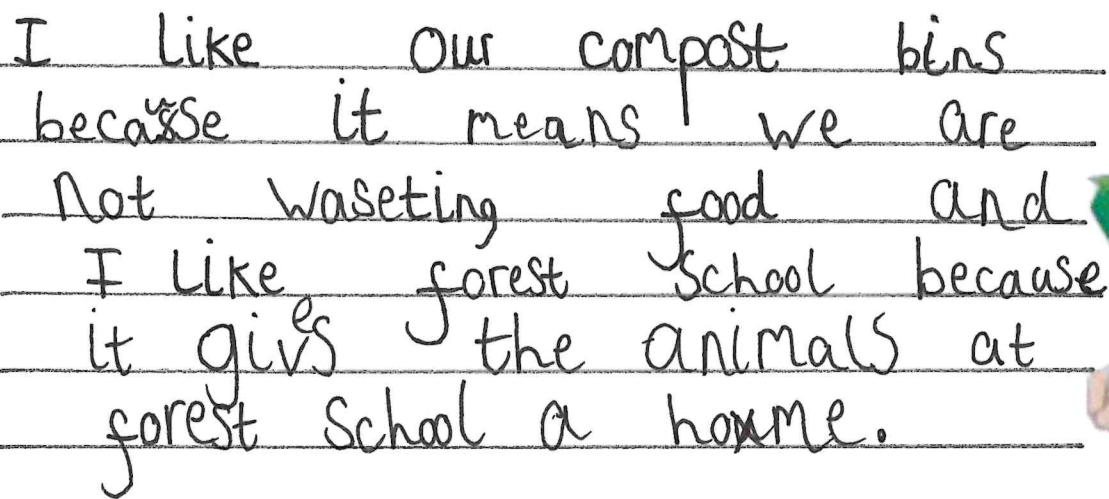 I like our compost bins
because it means we are
not waseting food and
I like forest school because
it gives the animals at
forest school a home.